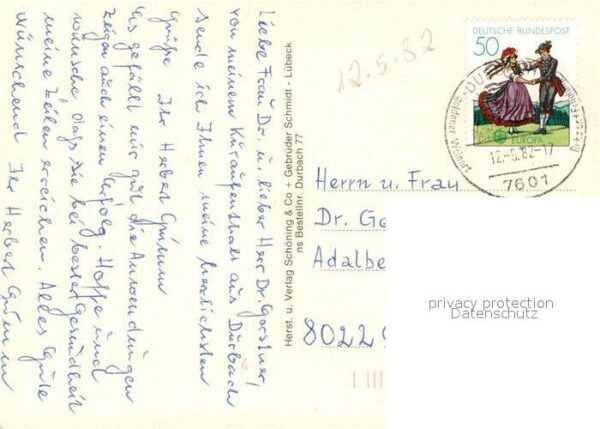 Liebe Frau Dr. u. lieber Herr Dr. Gerstner,
von meinem Kuraufenthalt aus Durbach
sende ich Ihnen meine herzlichsten
Grüße Ihr Herbert
Es gefällt mir gut die Anwendungen
zeigen auch einen Erfolg. Hoffe und
wünsche daß Sie bei bester Gesundheit
meine Zeilen erreichen. Alles Gute
wünschend Ihr Herbert
Herst. u. Verlag Schöning & Co + Gebrüder Schmidt - Lübeck
ns Bestellnr. Durbach 77
12.5.82
DEUTSCHE BUNDESPOST
50
EUROPA
12.-5.82-17
7601
Herrn u. Frau
Dr. Ge
Adalbe
8022
privacy protection
Datenschutz